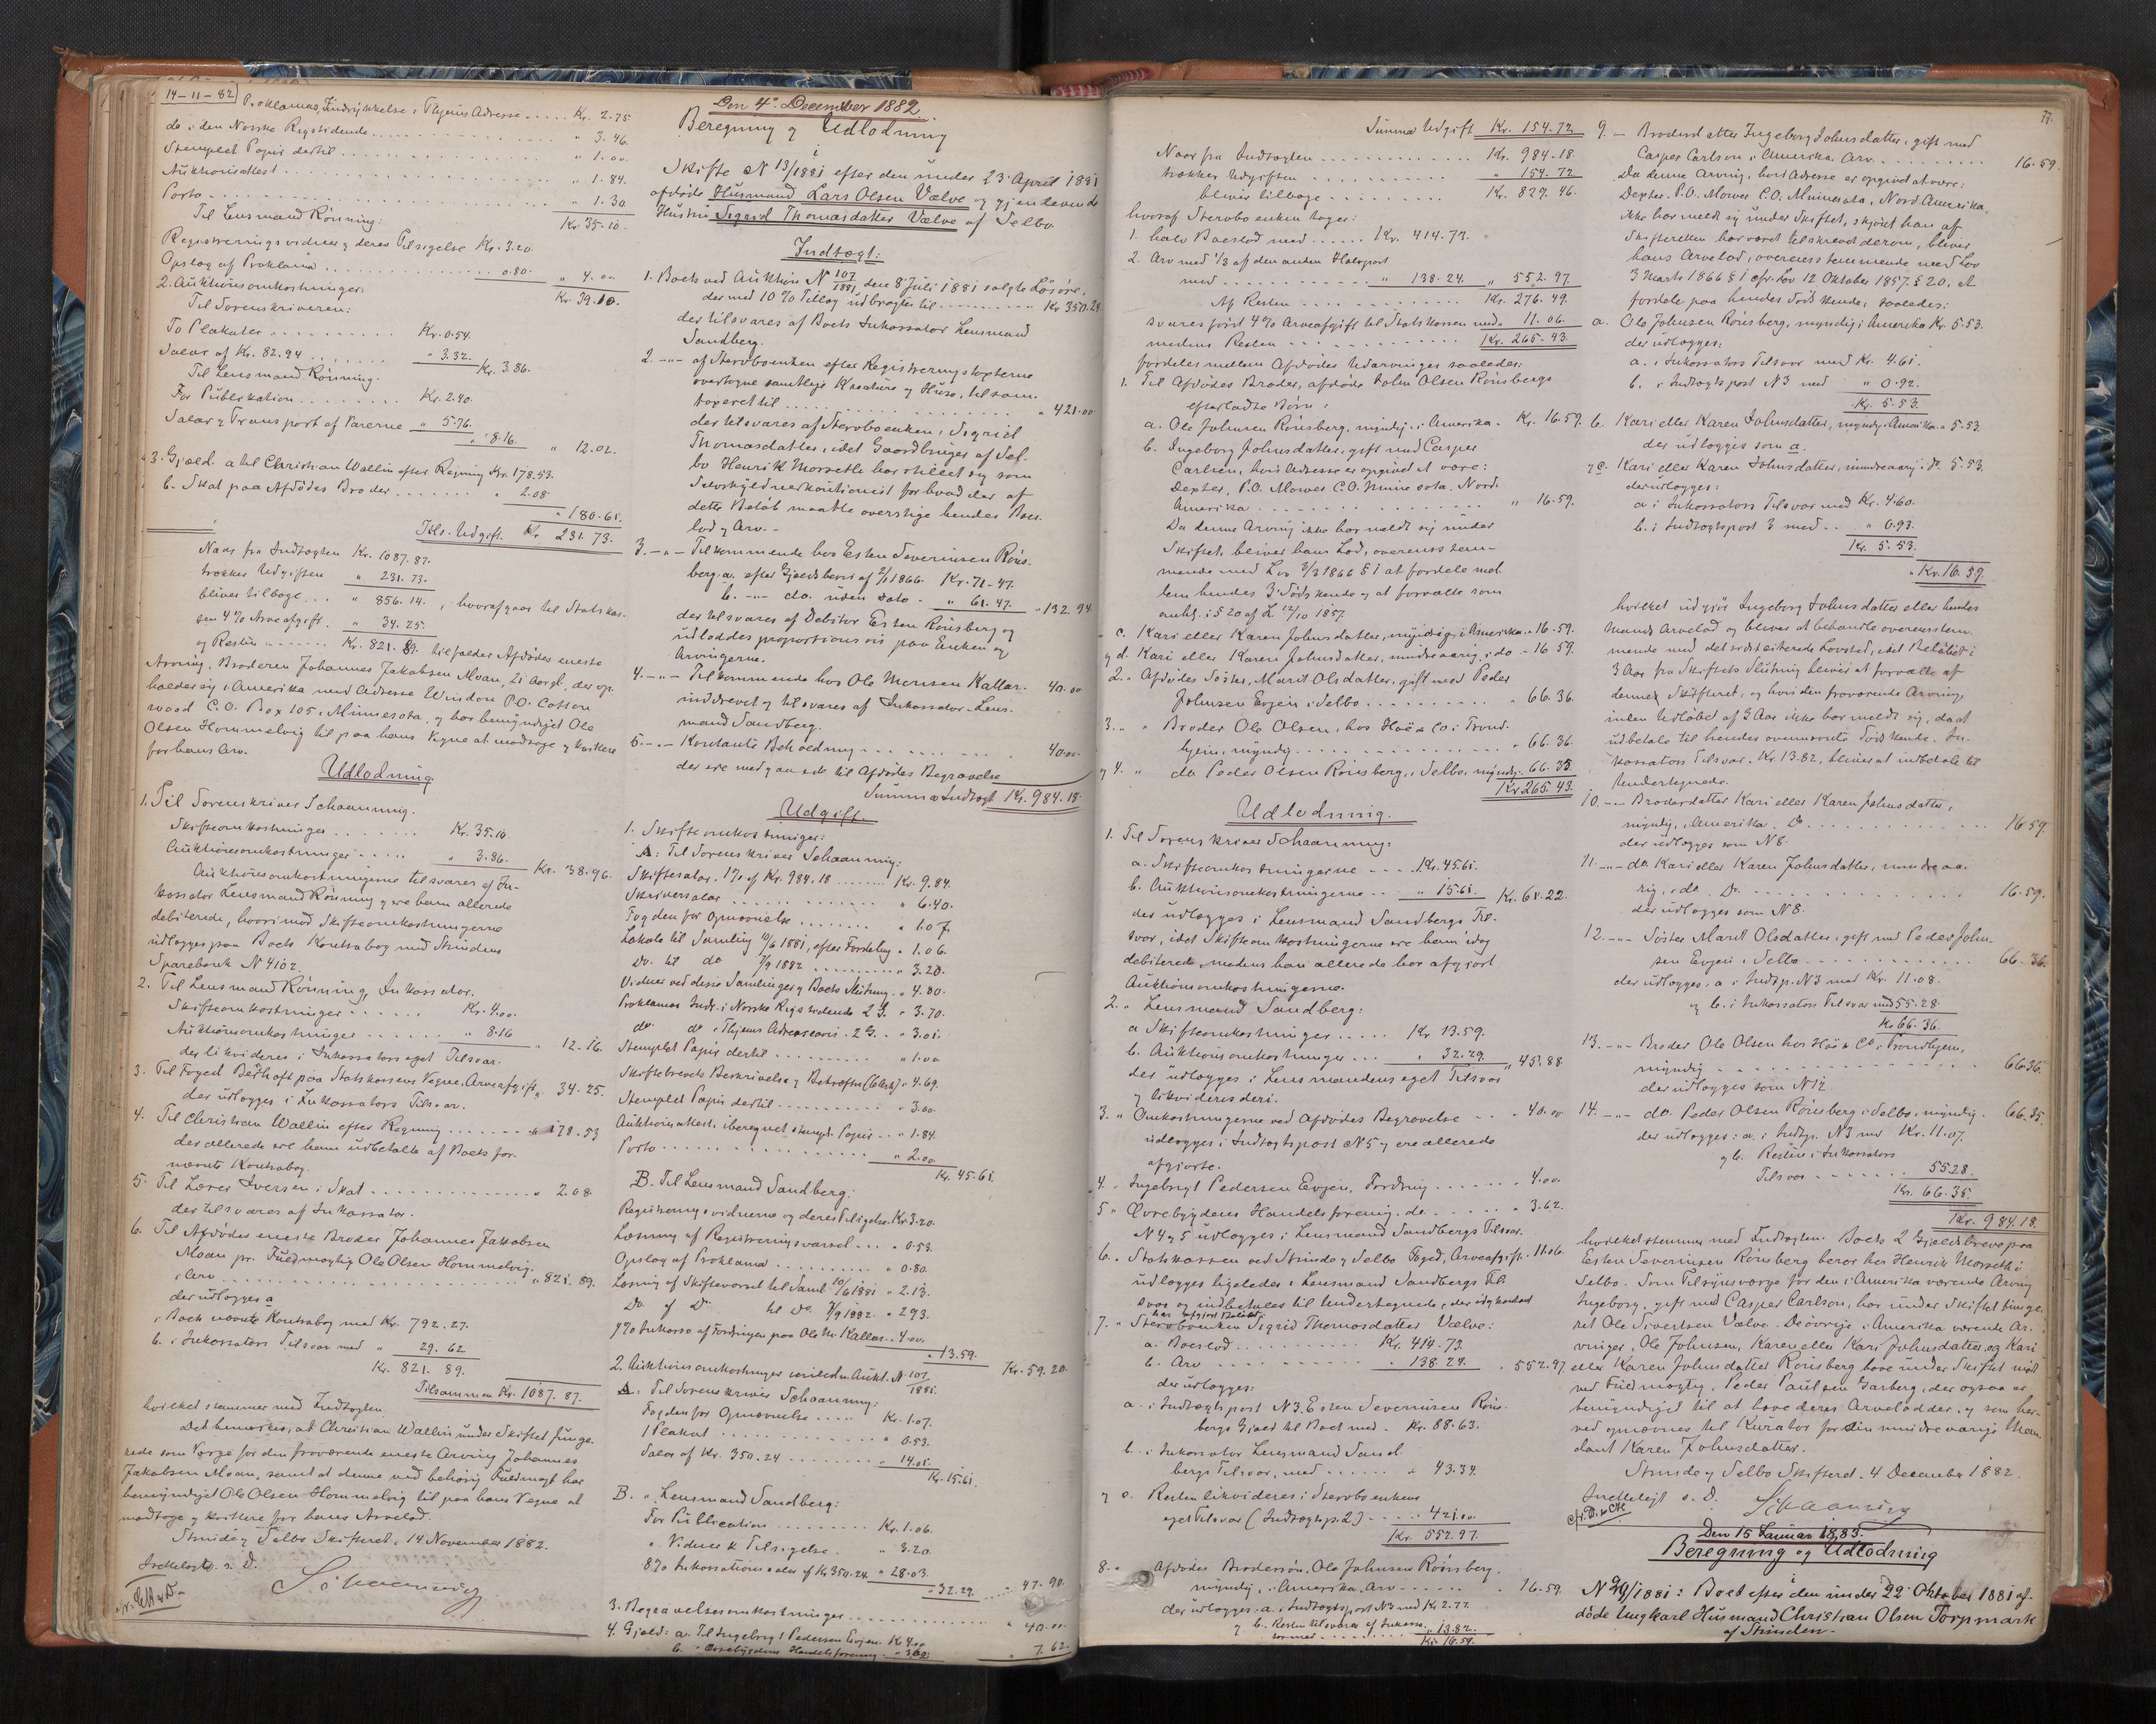 14-11-82
Proklamas Indrykkelse i Thjems Adresse ..... Kr. 2.75
do i den Norske Rigstidende ..... " 3.46
Stemplet Papir dertil ..... " 1.00
Auktionsattest ..... " 1.84
Porto ..... " 1.30
Kr. 35.10.
Til Lensmand Rönning:
Registreringsvidner & deres Tilsigelse Kr. 3.20
Opslag af Proklama ..... 0.80. " 4.00
Kr. 39.10.
2. Auktionsomkostninger:
Til Sorenskriveren:
To Plakater ..... Kr. 0.54.
Salær af Kr. 82.94 ..... " 3.32. Kr. 3.86.
Til Lensmand Rönning.
For Publikation ..... Kr. 2.40.
Salær & Transport af Varerne " 5.76.
" 8.16. " 12.02.
3. Gjæld. a til Christian Wallin efter Regning Kr. 178.53.
b. Skat paa Afdödes Broder ..... " 2.08
" 180.61.
Tils. Udgift. Kr. 231.73.
Naar fra Indtægten Kr. 1087.87.
trækkes Udgiften " 231.73.
bliver tilbage ... " 856.14., hvoraf gaar til Statskas-
sen 4% Arveafgift. " 34.25.
og Resten ..... Kr. 821.89. tilfalder Afdödes eneste
Arving, Broderen Johannes Jakobsen Moan, 21 Aar gl., der op-
holder sig i Amerika med Adresse Windom P.O. Cotton
wood C.O. Box 105. Minnesota, og har bemyndiget Ole
Olsen Hommelvig til paa hans Vegne at modtage & kvittere
for hans Arv.
Udlodning
1. Til Sorenskriver Schaanning.
Skifteomkostninger ..... Kr. 35.10
Auktionsomkostninger ..... " 3.86. Kr. 38.96.
Auktionsomkostningerne tilsvares af In-
kassator Lensmand Rönning & ere ham allerede
debiterede, hvorimod Skifteomkostningerne
udlægges paa Boets Kontrabog med Strindens
Sparebank N 4102.
2. Til Lensmand Rönning, Inkassator.
Skifteomkostninger ..... Kr. 4.00
Auktionsomkostninger ..... " 8.16 " 12.16.
der likvideres i Inkassators eget Tilsvar.
3. Til Foged Berthoft paa Statskassens Vegne. Arveafgift " 34.25.
der udlægges i Inkassators Tilsvar.
4. Til Christian Wallin efter Regning ..... " 178.53
der allerede ere ham udbetalte af Boets for.
nævnte Kontrabog.
5. Til Lærer Iversen i Skat ..... " 2.08.
der tilsvares af Inkassator.
6. Til Afdödes eneste Broder Johannes Jakobsen
Moan pr. Fuldmægtig Ole Olsen Hommelvig.
i Arv ..... " 821.89.
der udlægges a
i Boets nævnte Kontrabog med Kr. 792.27.
b. i Inkassators Tilsvar med " 29.62
Kr. 821.89.
Tilsammen Kr. 1087.87.
hvilket stemmer med Indtægten.
Det bemærkes, at Christian Wallin under Skiftet funge-
rede som Værge for den fraværende eneste Arving Johannes
Jakobsen Moan, samt at denne ved behörig Fuldmagt har
bemyndiget Ole Olsen Hommelvig til paa hans Vegne at
modtage & kvittere for hans Arvelod.
Strinde & Selbo Skifteret, 14 November 1882.
Fratelagte. s. D.
Schaanning
Den 4de December 1882.
Beregning og Udlodning
i
Skifte N 13/1881 efter den under 23 April 1881
afdöde Husmand Lars Olsen Vælve og gjenlevende
Hustru Sigrid Thomasdatter Vælve af Selbo
Indtægt:
1. Boets ved Auktion N 107/1881, den 8 Juli 1881 solgte Lösöre,
der med 10% Tillæg udbragtes til ..... Kr 350.24
der tilsvares af Boets Inkassator Lensmand
Sandberg.
2. -"- af Stervboenken efter Registreringstaxterne
overtagne samtlige Kreature & Huse, tilsam.
taxeret til ..... " 421.00
der tilsvares af Stervboenken, Sigrid
Thomasdatter, idet Gaardbruger af Sel-
bo Henrik Morseth har stillet sig som
Selvskyldnerkautionist for hvad der af
dette Belöb maatte overstige hendes Boes-
lod & Arv. -
3. -"- Tilkommende hos Esten Severinsen Röns-
berg. a. efter Gjældsbevis af 2/1 1866. Kr. 71-47.
b. -"- do. uden Dato - " 61.47. " 132.94
der tilsvares af Debitor Esten Rönsberg og
udloddes proportionsvis paa Enken og
Arvingerne.
4. -"- Tilkommende hos Ole Monsen Kallar. 40.00
inddrevet & tilsvares af Inkassator. Lens-
mand Sandberg.
5. -"- Kontante Beholdning ..... 40.00
der ere medgaaede til Afdödes Begravelse
Summa Indtægt Kr. 984.18.
Udgift.
1. Skifteomkostninger:
A: Til Sorenskriver Schaanning:
Skiftesalær. 1% af Kr. 984.18 ..... Kr. 9.84.
Skriversalær ..... " 6.40.
Fogden for Opnævnelse ..... " 1.07.
Lokale til Samling 10/6 1881, efter Fordeling " 1.06.
Do. til do 7/9 1882 ..... " 3.20.
Vidner ved disse Samlinger & Boets Slutning. " 4.80.
Proklamas Indr. i Norske Rigstidende 2 G. " 3.70.
do. do i Thjems Adressecont. 2 G. " 3.01.
Stemplet Papir dertil ..... " 1.00
Skiftebrevets Beskrivelse & Bekræftn (6 Ark) " 4.69.
Stemplet Papir dertil ..... " 3.00.
Auktionsattest. iberegnet stempl. Papir .. " 1.84.
Porto ..... " 2.00
Kr. 45.61.
B. Til Lensmand Sandberg:
Registreringsvidnerne og deres Tilsigelse. Kr. 3.20.
Læsning af Registreringsvarsel ... " 0.53.
Opslag af Proklama ..... " 0.80.
Læsning af Skiftevarsel til Saml. 10/6 1881 " 2.13.
Do. af Do. til Do. 7/9 1882. " 2.93.
% Inkasso af Fordringen paa Ole M. Kallar. " 4.00.
" 13.59. Kr. 59.20
2. Auktionsomkostninger ved Aukt. N 107/1881.
A: Til Sorenskriver Schaanning:
Fogden for Opnævnelse ..... Kr. 1.07.
1 Plakat ..... " 0.53.
Salær af Kr. 350.24 ..... " 14.01.
Kr. 15.61.
B. " Lensmand Sandberg:
For Publication ..... Kr. 1.06.
" Vidner & Tilsigelse. " 3.20
8% Inkassationssalær af Kr 350.24. " 28.03.
" 32.29. " 47.90.
3. Begravelsesomkostninger ..... " 40.00.
4. Gjæld: a. Til Ingebrigt Pedersen Evjen. Kr 4.00
b. " Övrebygdens Handelsforening " 3.62 " 7.62.
77.
Summa Udgift Kr. 154.72
Naar fra Indtægten ..... Kr. 984.18.
trækkes Udgiften ..... " 154.72
bliver tilbage ..... Kr. 829.46.
hvoraf Stervboenken tager:
1. halv Boeslod med ..... Kr. 414.73.
2. Arv med 1/3 af den anden Halvpart
med ..... " 138.24. " 552.97
Af Resten ..... Kr. 276.49.
svares först 4% Arveafgift til Statskassen med " 11.06.
medens Resten ..... Kr. 265.43.
fordeles mellem Afdödes Udarvinger saaledes:
1. Til Afdödes Broder, afdöde John Olsen Rönsbergs
efterladte Börn:
a. Ole Johnsen Rönsberg, myndig, i Amerika. Kr. 16.59.
b. Ingeborg Johnsdatter, gift med Casper
Carlsen, hvis Adresse er opgivet at være:
Dexter, P.O. Mower C.O. Minnesota. Nord-
Amerika ..... " 16.59.
Da denne Arving ikke har meldt sig under
Skiftet, bliver hans Lod, overensstem-
mende med Lov 3/3 1866 § 1 at fordele mel-
lem hendes 3 Södskende & at forvalte som
anhl. i § 20 af L 12/10 1857.
" c. Kari eller Karen Johnsdatter, myndig, i Amerika. " 16.59.
& d. Kari eller Karen Johnsdatter, mindreaarig, i do - 16.59.
2. " Afdödes Söster, Marit Olsdatter, gift med Peder
Johnsen Evjen i Selbo ..... " 66.36.
3. " " Broder Ole Olsen, hos Höe & Co i Trond-
hjem, myndig ..... " 66.36.
& 4. " do Peder Olsen Rönsberg, i Selbo, myndig. 66.35.
Kr 265.43.
Udlodning.
1. Til Sorenskriver Schaanning:
a. Skifteomkostningerne ..... Kr. 45.61.
b. Auktionsomkostningerne ... " 15.61. Kr. 61.22.
der udlægges i Lensmand Sandbergs Til-
svar, idet Skifteomkostningerne ere ham idag
debiterede, medens han allerede har afgjort
Auktionsomkostningerne.
2. " Lensmand Sandberg:
a Skifteomkostninger ..... Kr 13.59.
b. Auktionsomkostninger ... " 32.29. " 45.88
der udlægges i Lensmandens eget Tilsvar
& likvideres deri.
3. " Omkostningerne ved Afdödes Begravelse ... " 40.00
udlægges i Indtægtspost N 5 & ere allerede
afgjorte.
4. " Ingebrigt Pedersen Evjen, Fordring ..... " 4.00.
5 " Övrebygdens Handelsforening. do ..... " 3.62.
N 4 & 5 udlægges i Lensmand Sandbergs Tilsvar.
6. " Statskassen ved Strinde & Selbo Foged, Arveafgift. " 11.06.
udlægges ligeledes i Lensmand Sandbergs Til-
svar og indbetales til Undertegnede, der
har afgjort Belöbet
7. " Stervboenken Sigrid Thomasdatter Vælve:
a. Boeslod ..... Kr. 414.73.
b. Arv ..... " 138.24. " 552.97
der udlægges:
a. i Indtægtspost N 3. Esten Severinsen Röns-
bergs Gjæld til Boet med. Kr. 88.63.
b. i Inkassator Lensmand Sand-
bergs Tilsvar, med ..... " 43.34.
& c. Resten likvideres i Stervboenkens
eget Tilsvar (Indtægtsp. 2) ..... 421.00.
Kr. 552.97.
8. " Afdödes Brodersön, Ole Johnsen Rönsberg,
myndig, i Amerika. Arv ..... " 16.59.
der udlægges: a. i Indtægtspost N 3 med Kr 2.77.
& b. Resten tilsvares af Inkassa-
tor med ..... " 13.82.
Kr. 16.59.
9. - Broderdatter Ingeborg Johnsdatter, gift med
Casper Carlsen i Amerika. Arv ..... 16.59.
Da denne Arving, hvis Adresse er opgivet at være:
Dexter. P.O. Mower C.O. Minnesota, Nord-Amerika,
ikke har meldt sig under Skiftet, skjönt han af
Skifteretten har været tilskrevet derom, bliver
hans Arvelod, overensstemmende med Lov
3 Marts 1866 § 1 cfr. Lov 12 Oktober 1857. § 20, at
fordele paa hendes Södskende, saaledes:
a. Ole Johnsen Rönsberg, myndig, i Amerika Kr. 5.53.
der udlægges:
a. i Inkassators Tilsvar med Kr. 4.61.
b. i Indtægtspost N 3 med " 0.92.
Kr. 5.53.
b. Kari eller Karen Johnsdatter, myndig, i Amerika. " 5.53.
der udlægges som a.
& c. Kari eller Karen Johnsdatter, mindreaarig, i do. 5.53.
der udlægges:
a i Inkassators Tilsvar med Kr. 4.60.
b. i Indtægtspost 3 med .. " 0.93.
Kr. 5.53.
" Kr. 16.59.
hvilket udgjör Ingeborg Johnsdatter eller hendes
Mands Arvelod og bliver at behandle overensstem-
mende med det sidstciterede Lovsted, idet Belöbet i
3 Aar fra Skiftets Slutning bliver at forvalte af
denne Skifteret, og hvis den fraværende Arving
inden Udlöbet af 3 Aar ikke har meldt sig, da at
udbetale til hendes ovennævnte Södskende. In-
kassators Tilsvar. Kr. 13.82, bliver at indbetale til
Undertegnede.
10. -"- Broderdatter Kari eller Karen Johnsdatter,
myndig, i Amerika. Do ..... 16.59.
der udlægges som N 8.
11. -"- do. Kari eller Karen Johnsdatter, mindreaa-
rig, i do. Do ..... 16.59.
der udlægges som N 8.
12. -"- Söster Marit Olsdatter, gift med Peder John-
sen Evjen i Selbo ..... 66.36.
der udlægges. a i Indtp. N 3 med Kr. 11.08.
& b. i Inkassators Tilsvar med 55.28.
Kr 66.36.
13. -"- Broder Ole Olsen hos Höe & Co i Trondhjem,
myndig ..... 66.36.
der udlægges som N 12.
14. -"- do. Peder Olsen Rönsberg i Selbo, myndig. 66.35.
der udlægges: a. i Indtp. N 3 med Kr. 11.07.
& b. Resten i Inkassators
Tilsvar ..... 55.28.
Kr. 66.35.
Kr. 984.18.
hvilket stemmer med Indtægten. Boets 2 Gjældsbreve paa
Esten Severinsen Rönsberg beror hos Henrik Morseth i
Selbo. Som Tilsynsværge for den i Amerika værende Arving
Ingeborg, gift med Casper Carlsen, har under Skiftet funge-
ret Ole Sivertsen Vælve. De övrige i Amerika værende Ar-
vinger, Ole Johnsen, Karen eller Kari Johnsdatter, og Kari
eller Karen Johnsdatter Rönsberg have under Skiftet mödt
ved Fuldmægtig, Peder Paulsen Garberg, der ogsaa er
bemyndiget til at hæve deres Arvelodder, & som her-
ved opnævnes til Kurator for den mindreaarige
Karen Johnsdatter.
Strinde & Selbo Skifteret. 4 December 1882.
Fratelagt s. D.
Schaanning
Den 15 Januar 1883.
Beregning og Udlodning
i
N 29/1881: Boet efter den under 22 Oktober 1881 af-
döde Ungkarl Husmand Christian Olsen Torpmark
af Strinden.